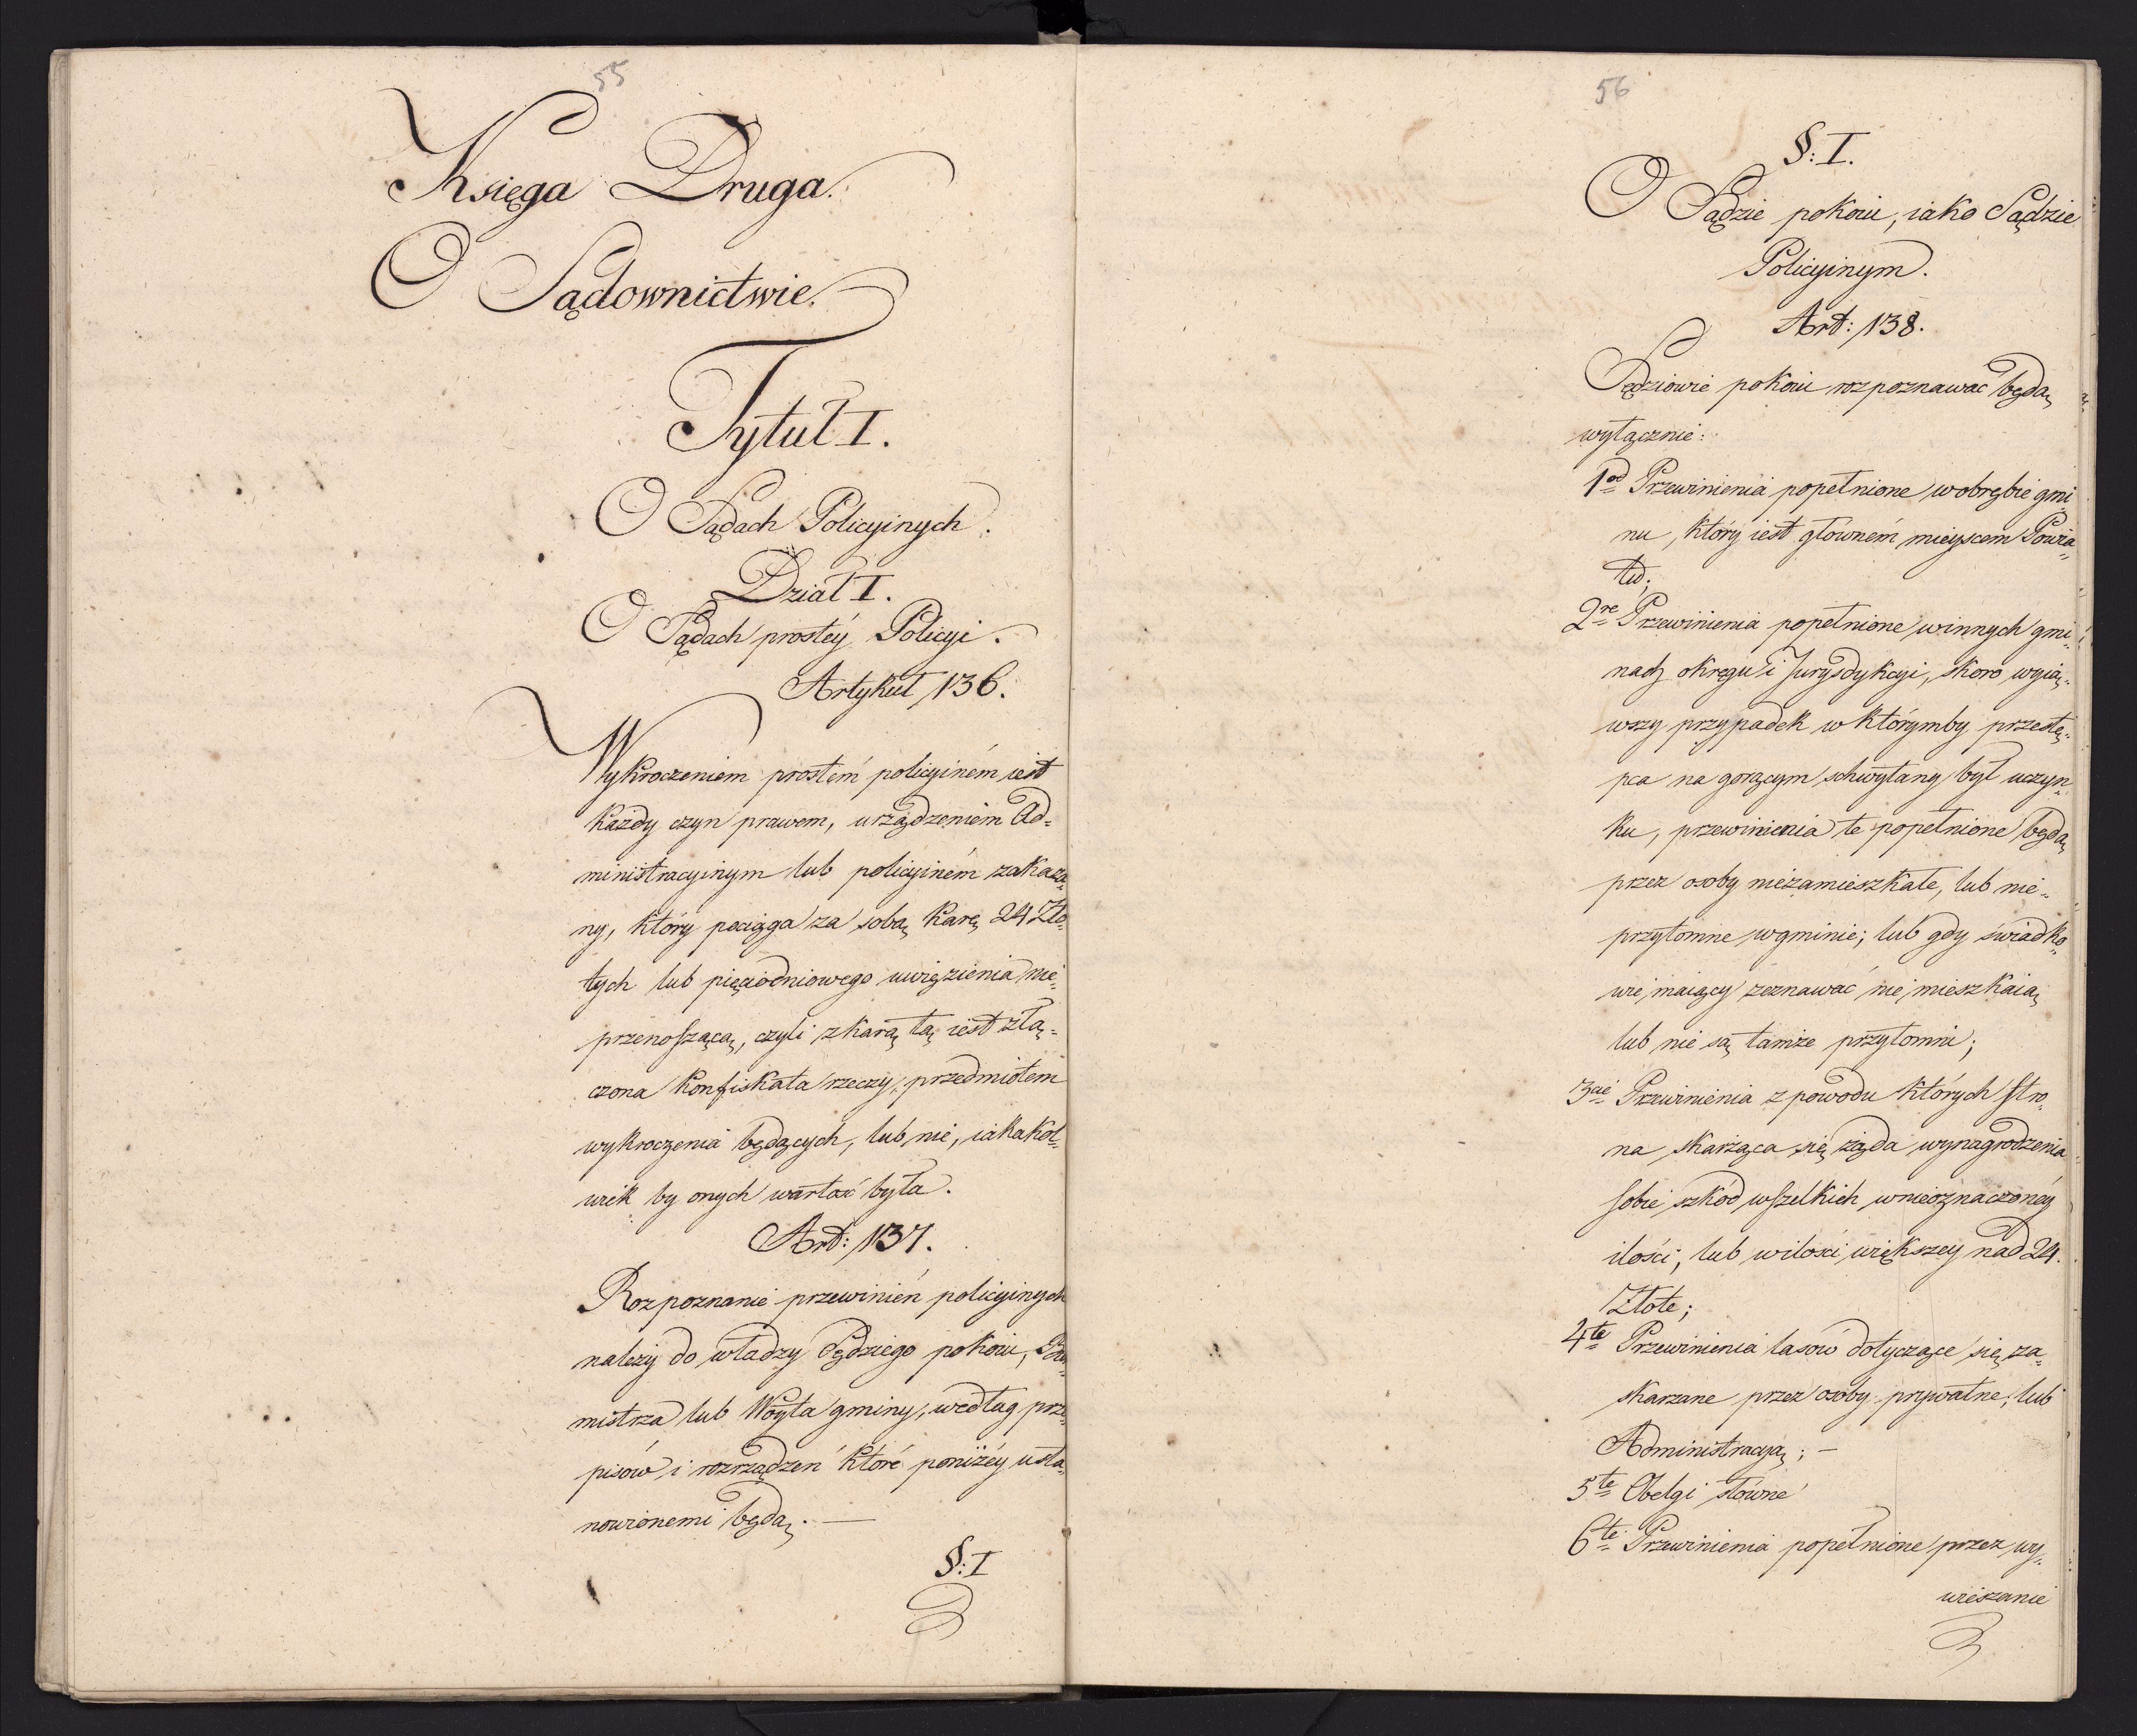 55
Księga Druga.
O Sądownictwie.
Tytuł I.
O Sądach Policyinych.
Dział I.
O Sądach prostéy Policyi.
Artykuł 136.
Wykroczeniem prostém policyiném iest
każdy czyn prawem, urządzeniem Ad=
ministracyinym lub policyiném zakaza=
ny, który pociąga za sobą karę 24 Zło=
tych lub pięciodniowego uwięzienia nie=
przenoszącą, czyli z karą tą iest złą=
czona konfiskata rzeczy, przedmiotem
wykroczenia będących, lub nie, iakakol=
wiek by onych wartość była.
Art: 137.
Rozpoznanie przewinień policyinych
należy do władzy Sędziego pokoiu,
mistrza lub Wóyta gminy, według prze=
pisów i rozrządzeń które poniżéy usta=
nowionemi będą. —
§: I
56
§: I.
O Sądzie pokoiu, iako Sądzie
Policyinym.
Art: 138.
Sędziowie pokoiu rozpoznawać będą
wyłącznie:
1od Przewinienia popełnione w obrębie gmi
nu, który iest głowném mieyscem Powia=
tu;
2re Przewinienia popełnione w innych gmi=
nach okręgu i Jurysdykcyi, skoro wyią=
wszy przypadek w którymby przestę=
pca na gorącym schwytany był uczyn=
ku, przewinienia te popełnione będą
przez osoby niezamieszkałe, lub nie=
przytomne w gminie; lub gdy świadko=
wie maiący zeznawać nie mieszkaią
lub nie są tamże przytomni;
3cie Przewinienia z powodu których stro=
na skarżąca się żąda wynagrodzenia
sobie szkód wszelkich w nieoznaczonéy
ilości, lub w ilości większey nad 24.
Złote;
4te Przewinienia lasów dotyczące się za=
skarzane przez osoby prywatne, lub
Administracyą; —
5te Obelgi słowne
6te Przewinienia popełnione przez wy=
wieszanie